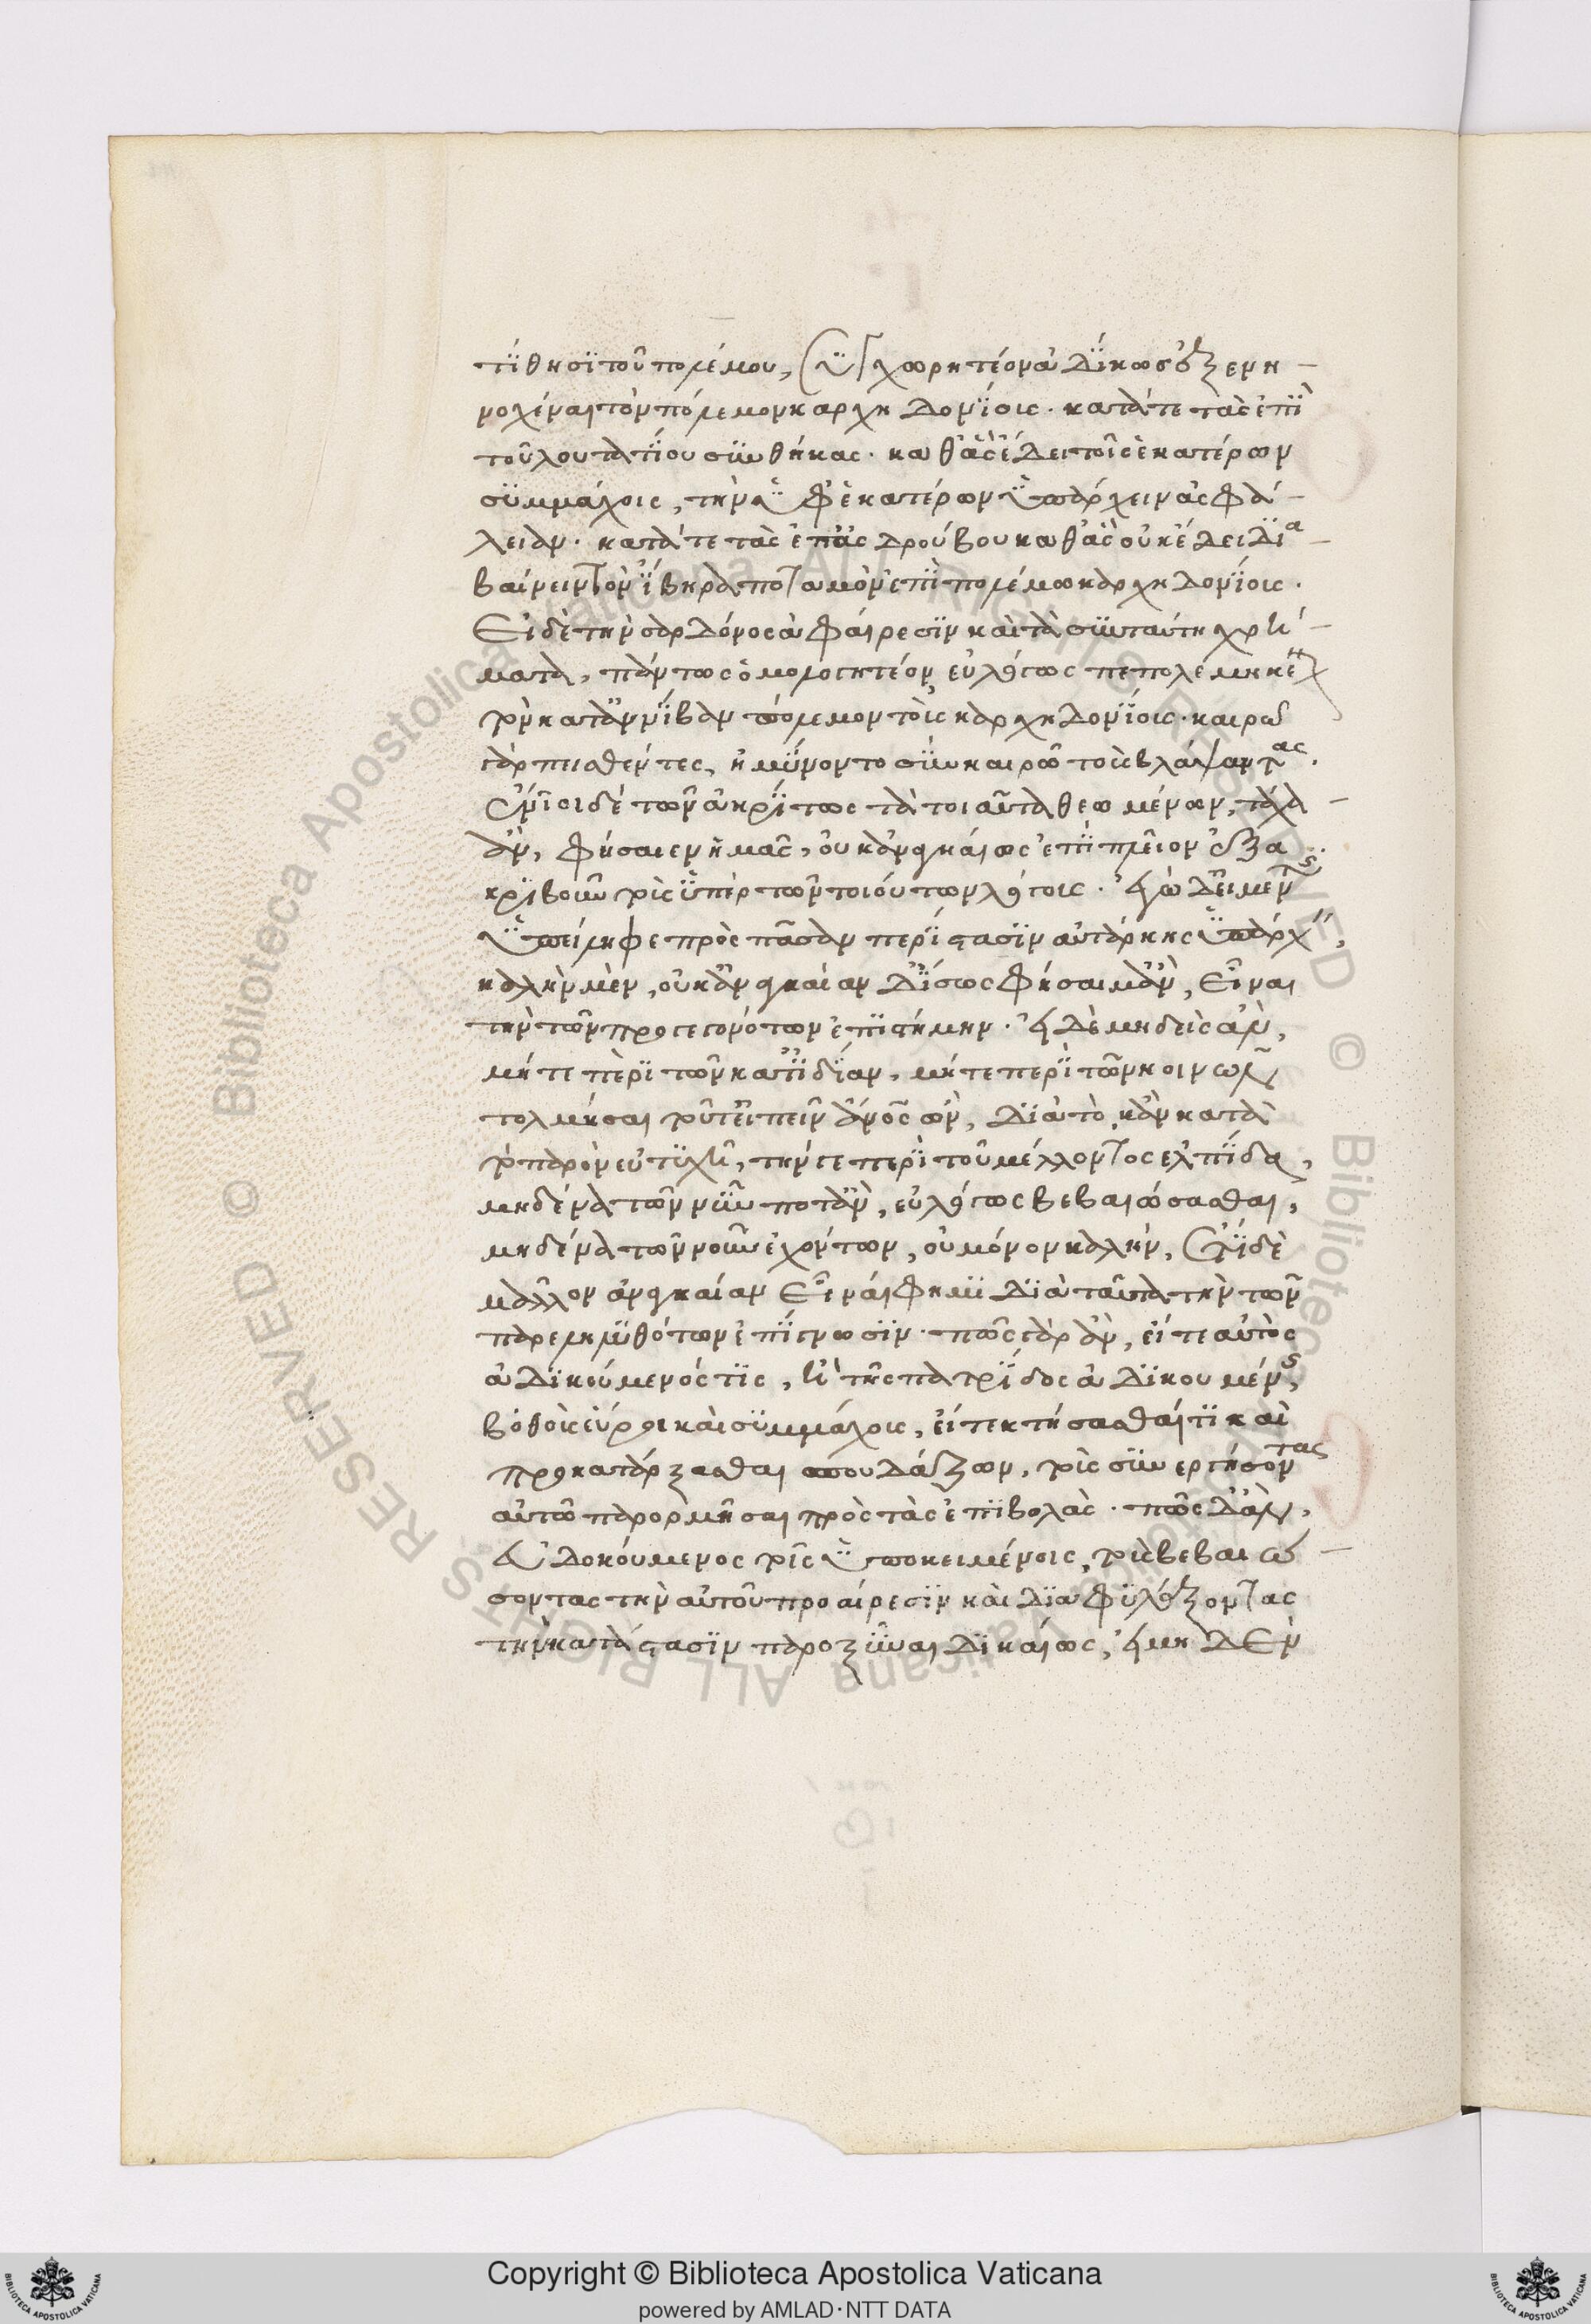 τίθησι τοῦ πολέμου, συγχωρητέον ἀδίκως ἐξενη
νοχέναι τὸν πόλεμον καρχηδονίοις. κατά τε τὰς ἐπὶ
τοῦ λουτατίου συνθήκας. καθ' ἃς ἔδει τοῖς ἑκατέρων
συμμάχοις, τὴν ὑφ' ἑκατέρων ὑπάρχειν ἀσφά
λειαν. κατά τε τὰς ἐπ' ἀσδρούβου καθ' ἃς οὐκ ἔδει δια
βαίνειν τὸν ἴβηρα ποταμὸν ἐπὶ πολέμω καρχηδονίοις.
Εἰ δὲ τὴν σαρδόνος ἀφαίρεσιν καὶ τὰ σὺν ταύτη χρή
ματα, πάντως ὁμολογητέον εὐλόγως πεπολεμηκέ
ναι τὸν κατ' ἀννίβαν πόλεμον τοῖς καρχηδονίοις. καιρῶ
γὰρ πεισθέντες, ἠμύνοντο σὺν καιρῶ τοὺς βλάψαντας.
Ἔνιοι δὲ τῶν ἀκρίτως τὰ τοιαῦτα θεωμένων, τάχα
ἂν, φήσαιεν ἡμᾶς, οὐκ ἀναγκαίως ἐπὶ πλεῖον ἐξα
κριβοῦν τοὺς ὑπὲρ τῶν τοιούτων λόγους. ἐγὼ δ' εἰ μέν τις
ὑπείληφε πρὸς πᾶσαν περίστασιν αὐτάρκης ὑπάρχειν,
καλὴν μὲν, οὐκ ἀναγκαίαν δ' ἴσως φήσαιμ' ἂν, εἶναι
τὴν τῶν προγεγονότων ἐπιστήμην. εἰ δὲ μηδεὶς ἂν,
μήτε περὶ τῶν κατ' ἰδίαν, μήτε περὶ τῶν κοινῶν
τολμήσαι τοῦτ' εἰπεῖν ἄνος ὢν, διὰ τὸ, κἂν κατὰ
τὸ παρὸν εὐτυχῆ, τήν γε περὶ τοῦ μέλλοντος ἐλπίδα,
μηδένα τῶν νῦν ποτ' ἂν, εὐλόγως βεβαιώσασθαι,
μηδένα τῶν νοῦν ἐχόντων, οὐ μόνον καλὴν, ἔτι δὲ
μᾶλλον ἀναγκαίαν εἶναι φημὶ διὰ ταῦτα τὴν τῶν
παρεληλυθότων ἐπίγνωσιν. πῶς γὰρ ἂν, εἴτε αὐτὸς
ἀδικούμενός τις, ἢ τῆς πατρίδος ἀδικουμένης,
βοθοὺς εὕροι καὶ συμμάχους, εἴτε κτήσασθαί τι καὶ
προκατάρξασθαι σπουδάζων, τοὺς συνεργήσοντας
αὐτῶ παρορμῆσαι πρὸς τὰς ἐπιβολάς. πῶς δ' ἂν,
εὐδοκούμενος τοῖς ὑποκειμένοις, τοὺς βεβαιώ
σοντας τὴν αὐτοῦ προαίρεσιν καὶ διαφυλάξοντας
τὴν κατάστασιν παροξύναι δικαίως, εἰ μηδὲν